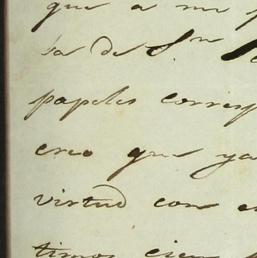 que a mi
sa de Sn
papeles corresp
creo que ya
virtud con e
timos cien